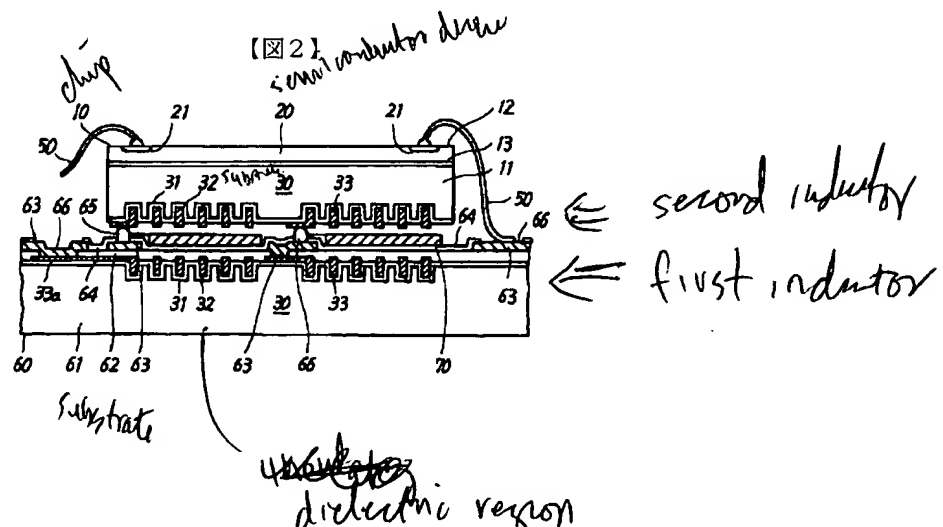 【図2】
chip
semiconductor device
10 21 20 21 12
50
13
11
31 32 substrate 30 33
50
second inductor
63 66 65 64 66
first inductor
33a 64 31 32 30 33 63
60 61 62 63 63 66 70
substrate
dielectric region